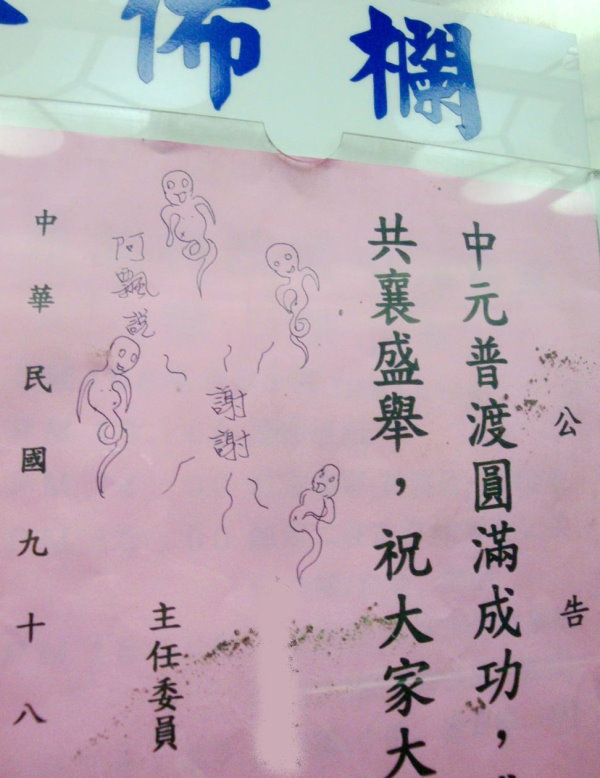 佈欄
公告
中元普渡圓滿成功，
共襄盛舉，祝大家大
阿飄說
謝謝
主任委員
中華民國九十八